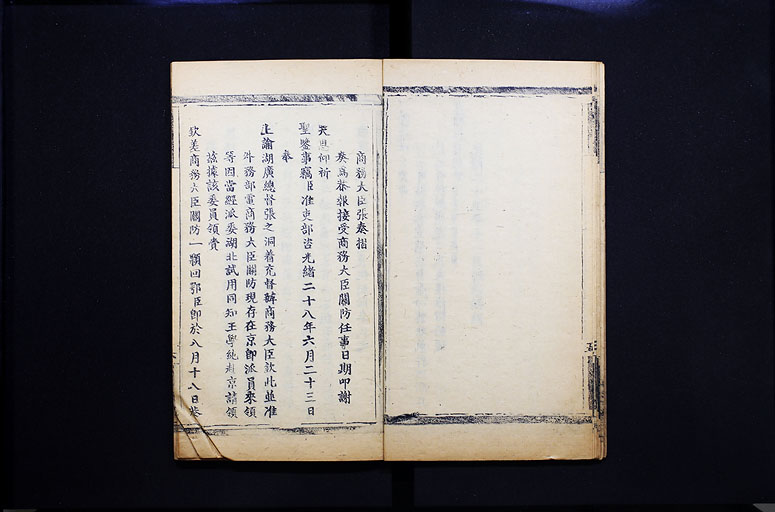 商務大臣張奏摺
奏爲恭報接受商務大臣關防任事日期叩謝
天恩仰祈
聖鑒事竊臣准吏部咨光緒二十八年六月二十三日
奉
上諭湖廣總督張之洞着充督辦商務大臣欽此並准
外務部電商務大臣關防現存在京卽派員來領
等因當經派委湖北試用同知王學純赴京請領
茲據該委員領賫
欽差商務大臣關防一顆回鄂臣卽於八月十八日恭
五